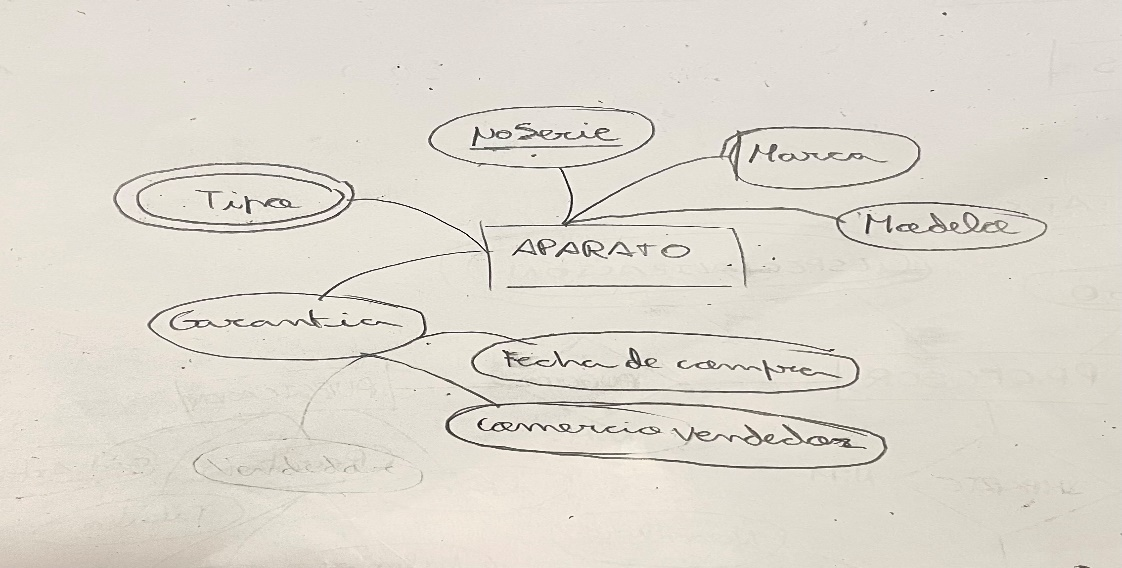 NoSerie
Marca
Tipo
Modelo
APARATO
Garantia
Fecha de compra
comercio vendedor